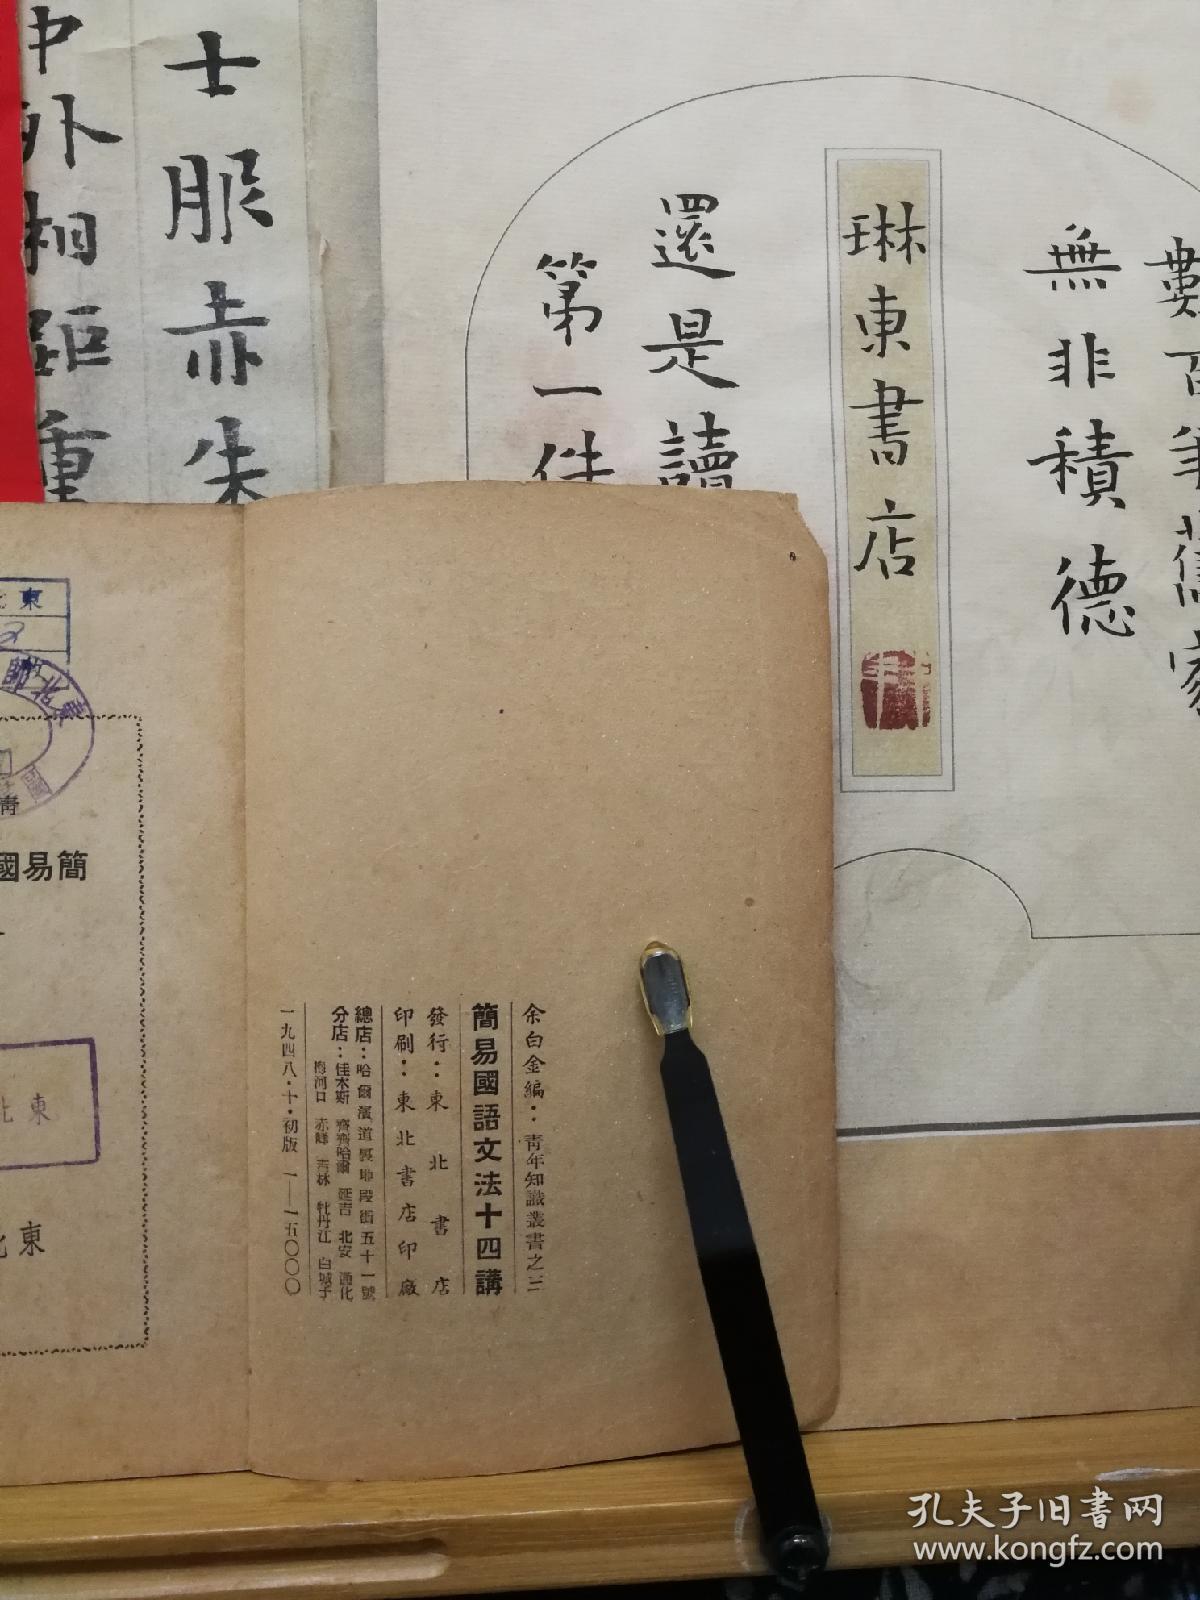 數百年舊家
無非積德
琳東書店
還是讀
第一件
士服赤朱
中外相距重
余白金編：青年知識叢書之三
簡易國語文法十四講
發行：東北書店
印刷：東北書店印廠
總店：哈爾濱道裏地段街五十一號
分店：佳木斯 齊齊哈爾 延吉 北安 通化
梅河口 赤峰 吉林 牡丹江 白城子
一九四八・十・初版 1—15000
東
簡易國
青
東北
東北
孔夫子旧书网
www.kongfz.com